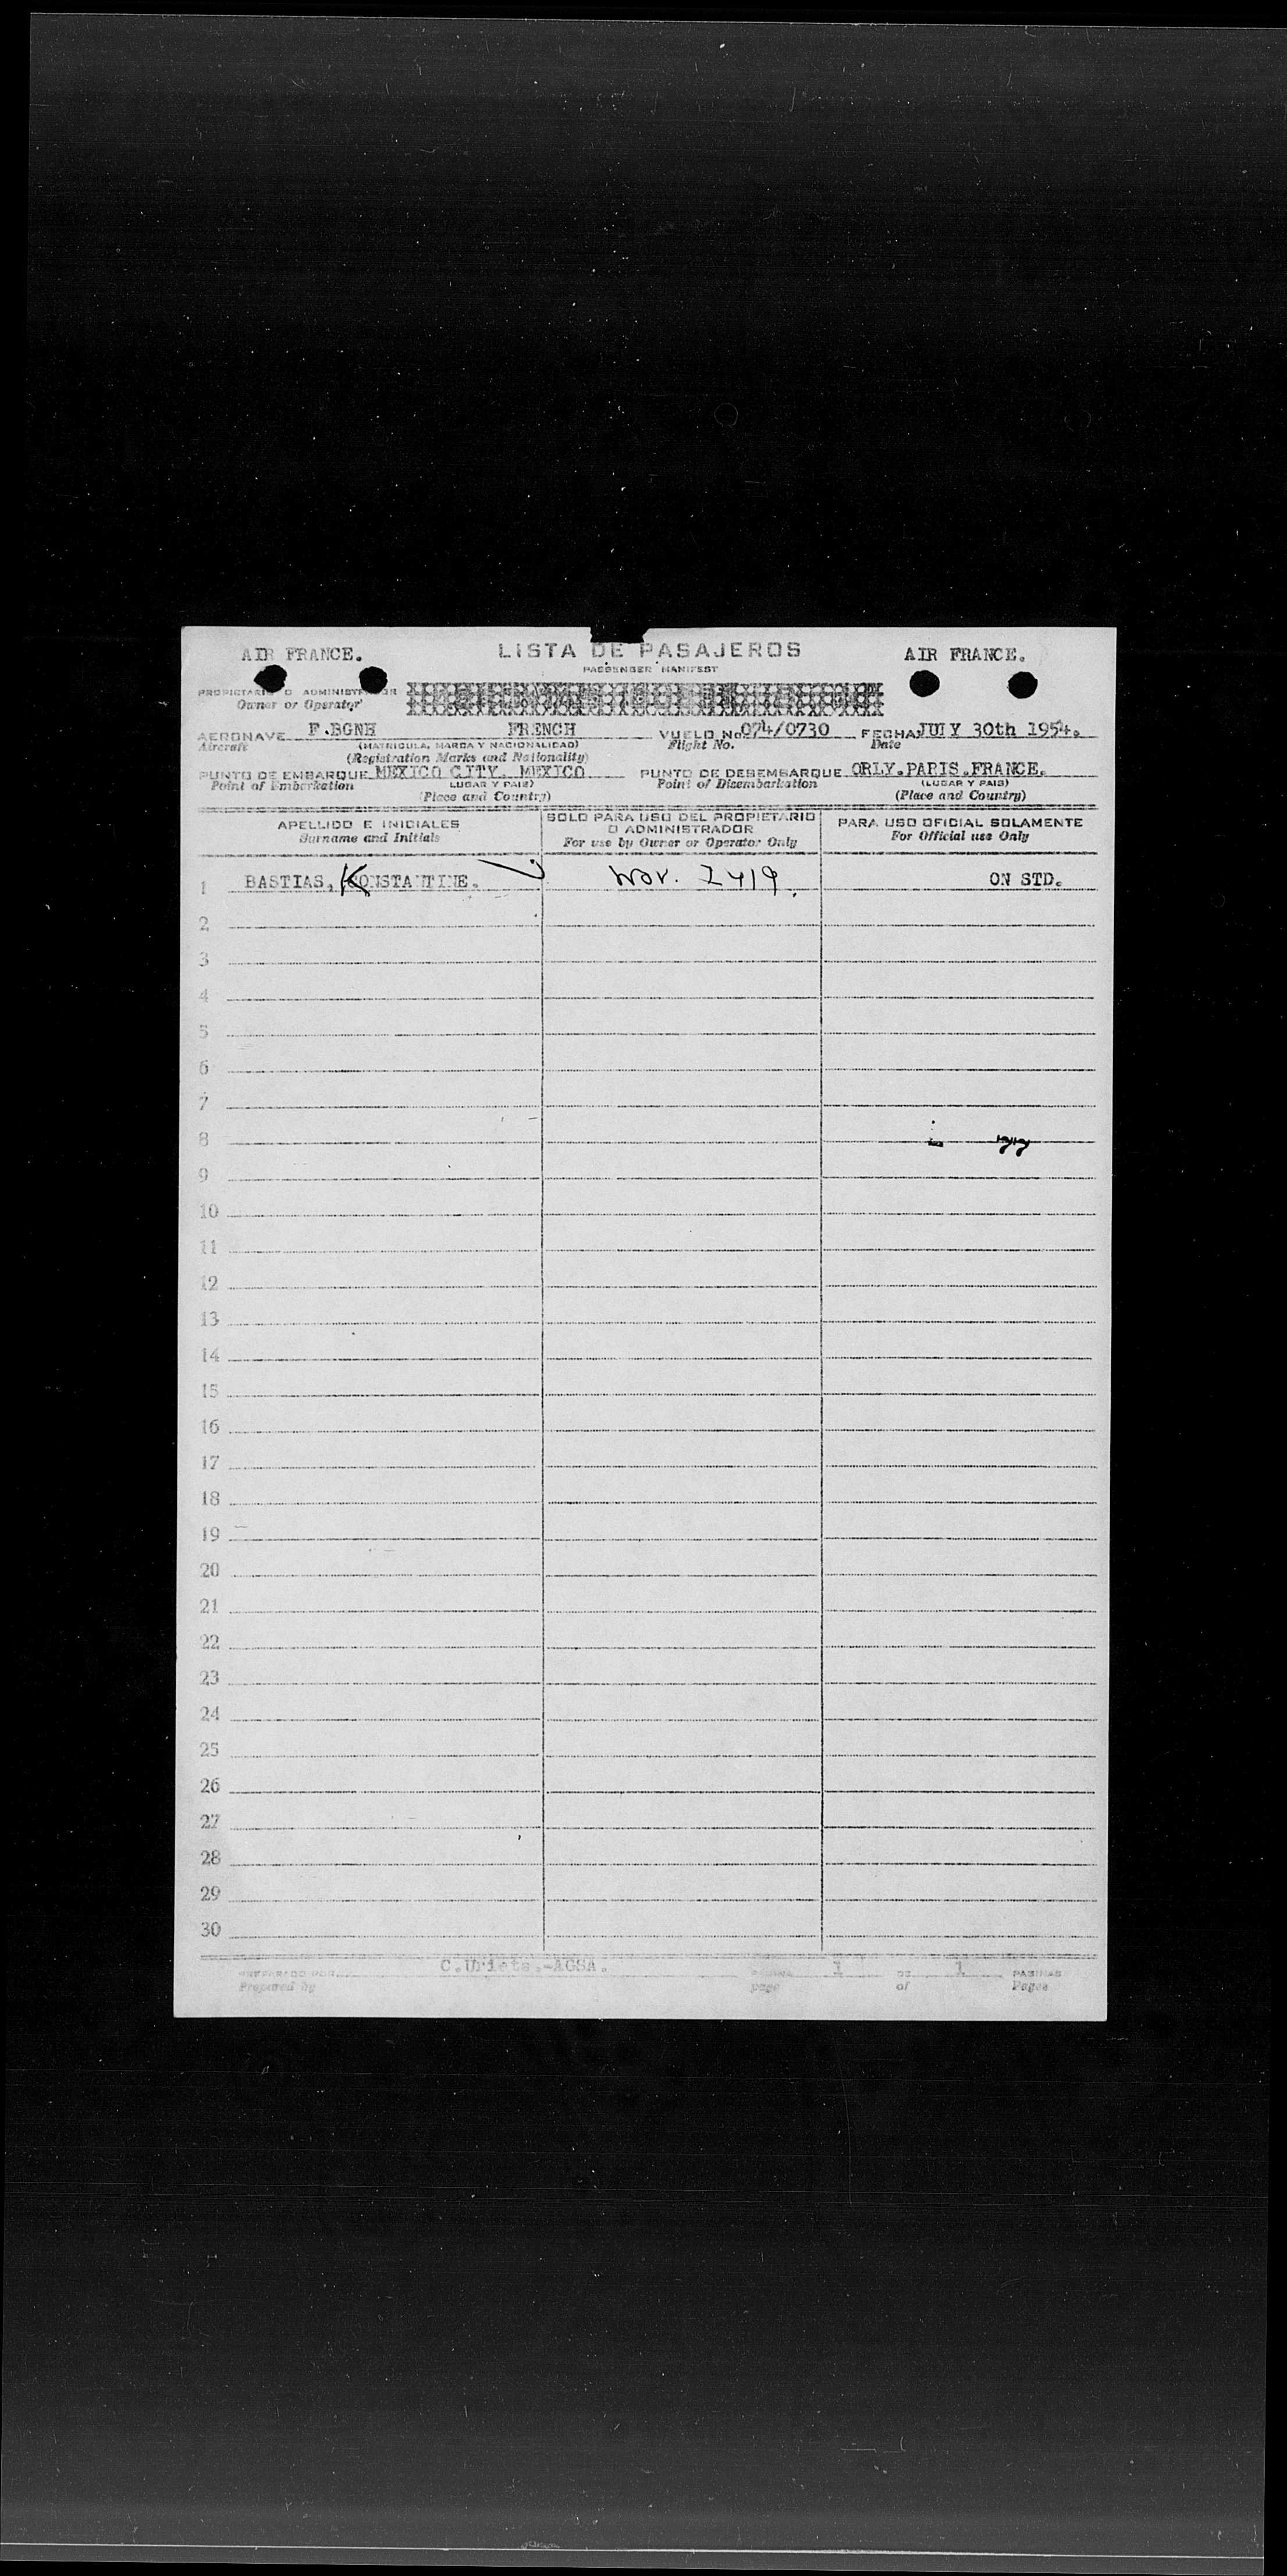 AIR FRANCE. LISTA DE PASAJEROS AIR FRANCE.
PASSENGER MANIFEST
PROPIETARIO O ADMINISTRADOR
Owner or Operator
AERONAVE F.BGNH FRENCH VUELO No. 074/0730 FECHA JULY 30th 1954.
Aircraft (MATRICULA, MARCA Y NACIONALIDAD) Flight No. Date
(Registration Marks and Nationality)
PUNTO DE EMBARQUE MEXICO CITY. MEXICO PUNTO DE DESEMBARQUE ORLY.PARIS.FRANCE.
Point of Embarkation (LUGAR Y PAIS) Point of Disembarkation (LUGAR Y PAIS)
(Place and Country) (Place and Country)
APELLIDO E INICIALES SOLO PARA USO DEL PROPIETARIO O ADMINISTRADOR PARA USO OFICIAL SOLAMENTE
Surname and Initials For use by Owner or Operator Only For Official use Only
1 BASTIAS, KONSTANTINE. 2419. ON STD.
2
3
4
5
6
7
8
9
10
11
12
13
14
15
16
17
18
19
20
21
22
23
24
25
26
27
28
29
30
PREPARADO POR C.Urieta.-AGSA. PAGINA 1 DE 1 PAGINAS
Prepared by page of Pages